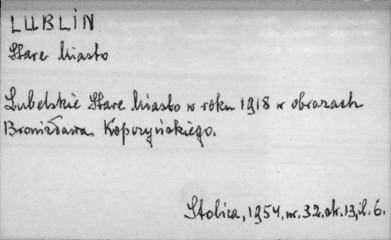 LUBLIN
Stare Miasto
Lubelskie Stare Miasto w roku 1918 w obrazach
Bronisława Kopczyńskiego.
Stolica, 1954, nr. 32, str. 13, il. 6.